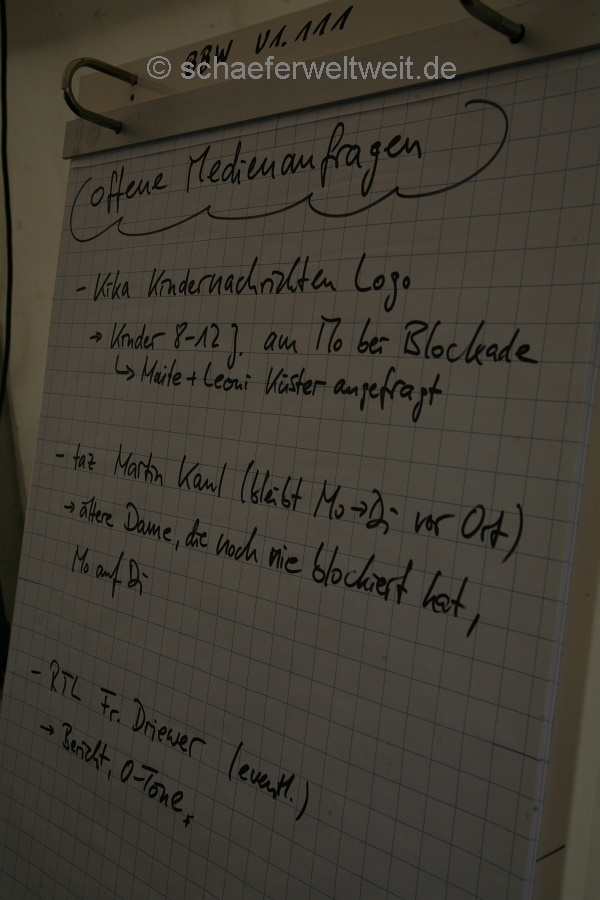 BBW V1.111
© schaeferweltweit.de
offene Medienanfragen
- Kika Kindernachrichten Logo
→ Kinder 8-12 J. am Mo bei Blockade
↳ Maite + Leoni Küster angefragt
- taz Martin Kaul (bleibt Mo→Di vor Ort)
→ ältere Dame, die noch nie blockiert hat,
Mo auf Di
- RTL Fr. Driewer (eventl.)
→ Bericht, O-Töne